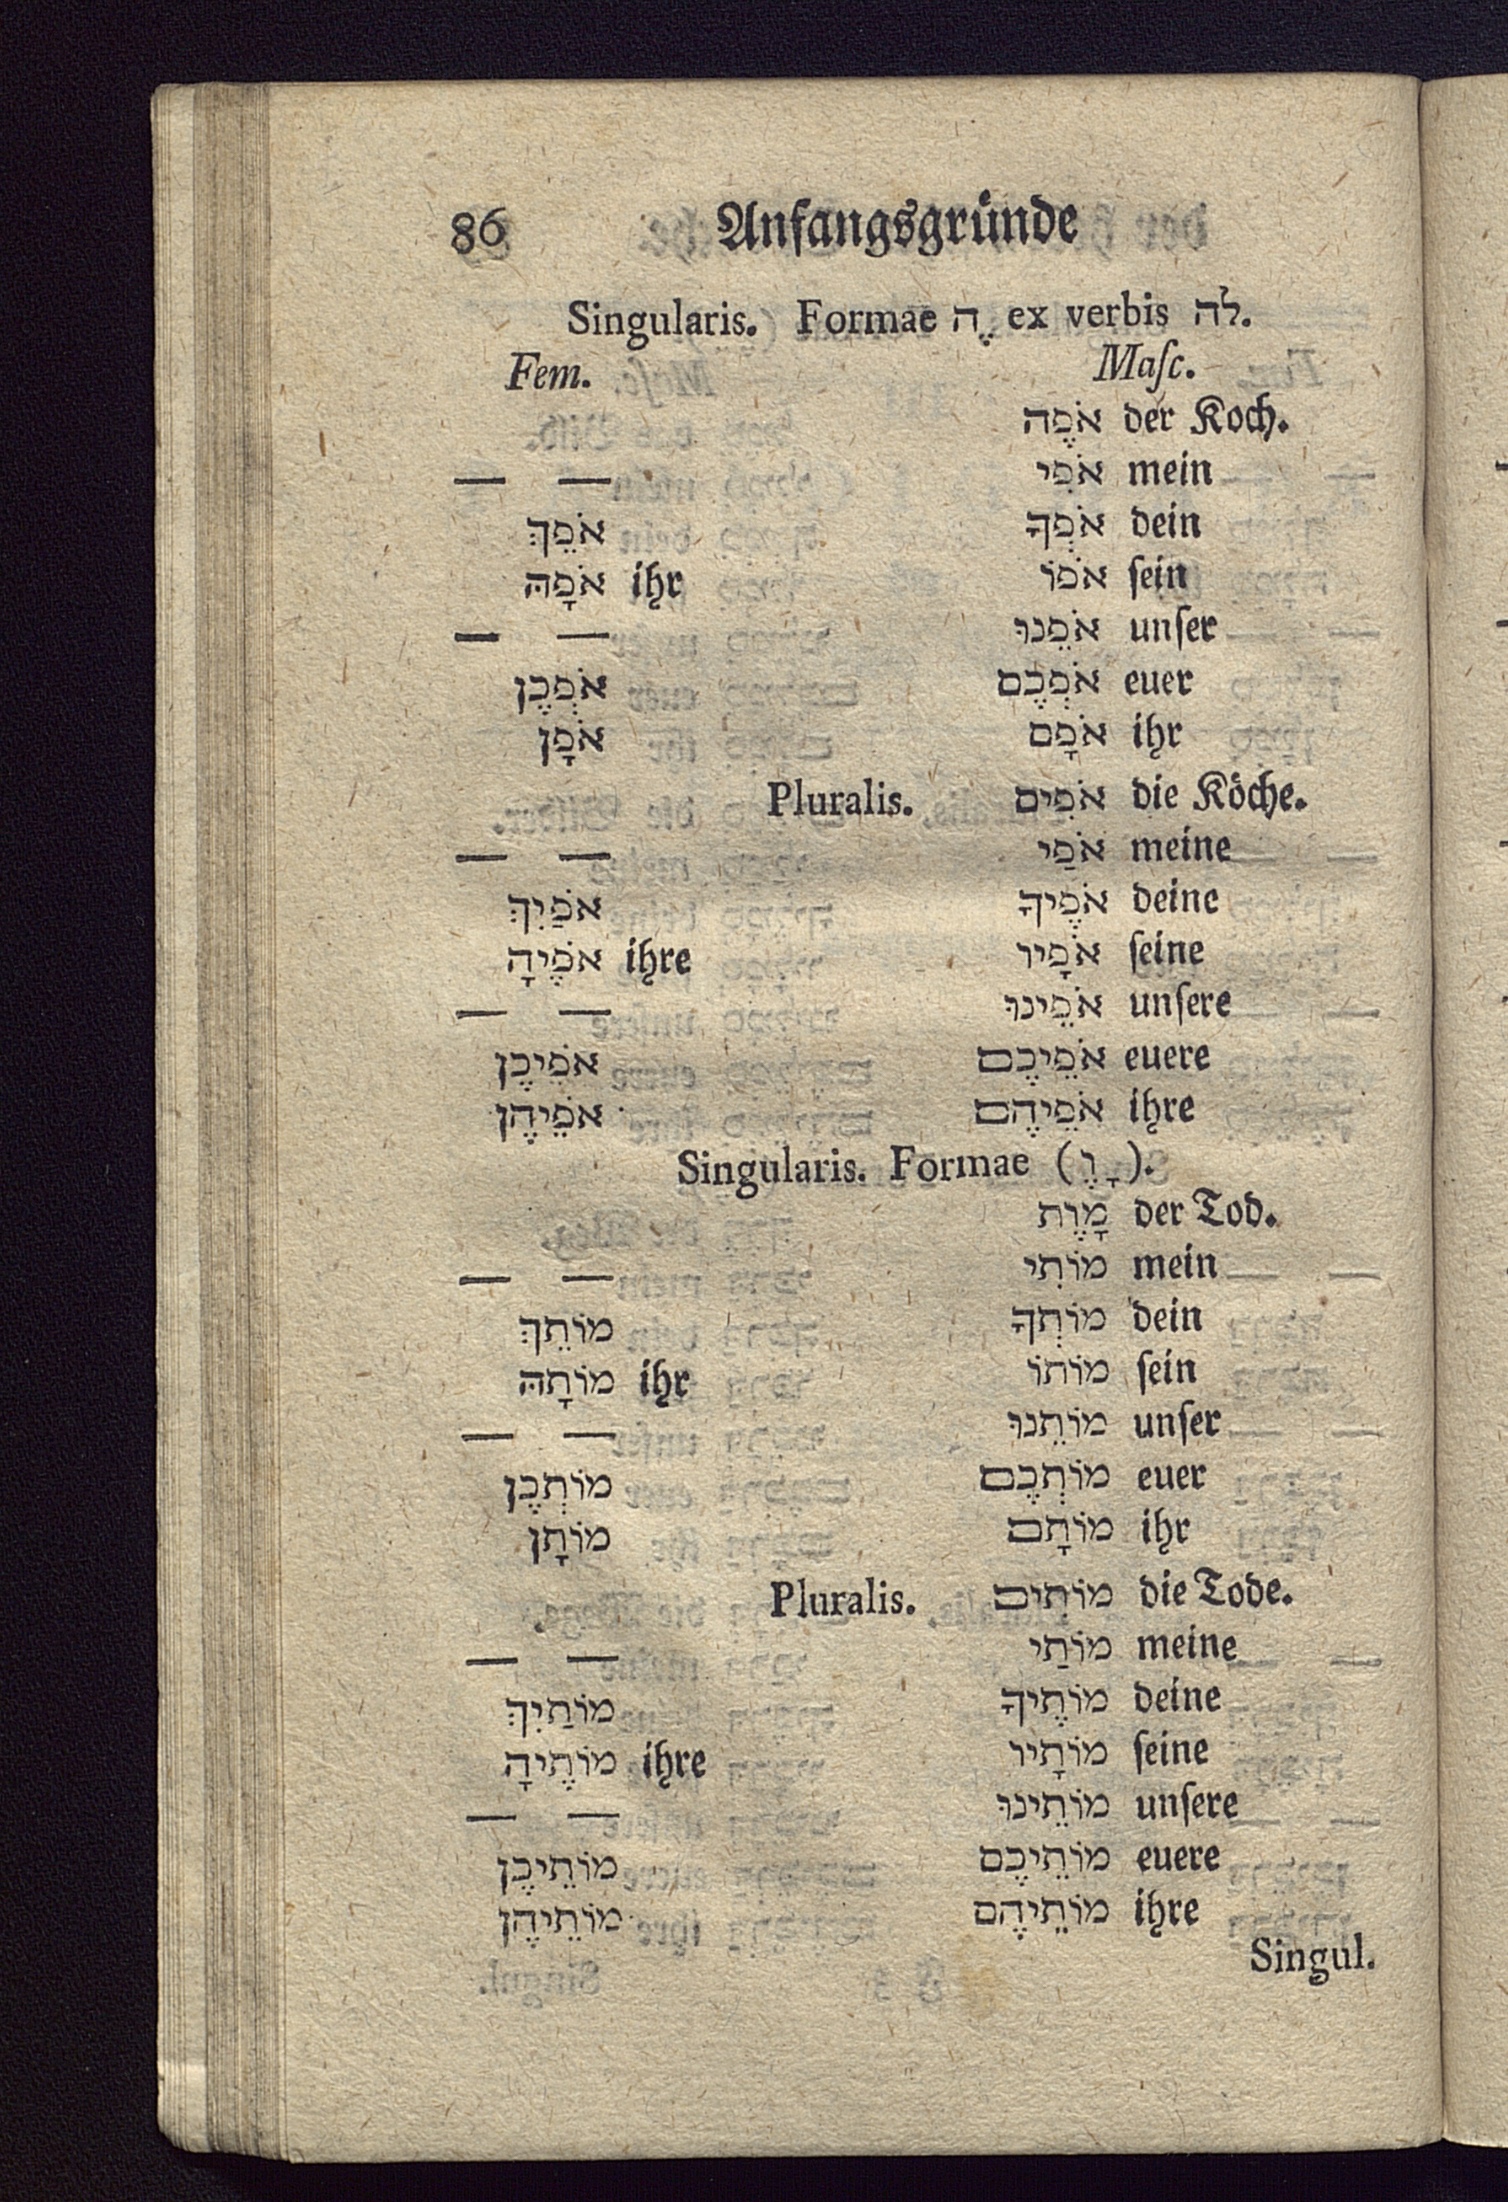 86 Anfangsgründe
Singularis. Formae ֶה ex verbis לה.
Fem. Maſc.
אֹפֶה der Koch.
— — אֹפִי mein
אֹפֵךְ אֹפְךָ dein
אֹפָהּ ihr אֹפוֹ ſein
— — אֹפֵנוּ unſer
אֹפְכֶן אֹפְכֶם euer
אֹפָן אֹפָם ihr
Pluralis. אֹפִים die Köche.
— — אֹפַי meine
אֹפַיִךְ אֹפֶיךָ deine
אֹפֶיהָ ihre אֹפָיו ſeine
— — אֹפֵינוּ unſere
אֹפֵיכֶן אֹפֵיכֶם euere
אֹפֵיהֶן אֹפֵיהֶם ihre
Singularis. Formae (ָוֶ).
מָוֶת der Tod.
— — מוֹתִי mein
מוֹתֵךְ מוֹתְךָ dein
מוֹתָהּ ihr מוֹתוֹ ſein
— — מוֹתֵנוּ unſer
מוֹתְכֶן מוֹתְכֶם euer
מוֹתָן מוֹתָם ihr
Pluralis. מוֹתִים die Tode.
— — מוֹתַי meine
מוֹתַיִךְ מוֹתֶיךָ deine
מוֹתֶיהָ ihre מוֹתָיו ſeine
— — מוֹתֵינוּ unſere
מוֹתֵיכֶן מוֹתֵיכֶם euere
מוֹתֵיהֶן מוֹתֵיהֶם ihre
Singul.